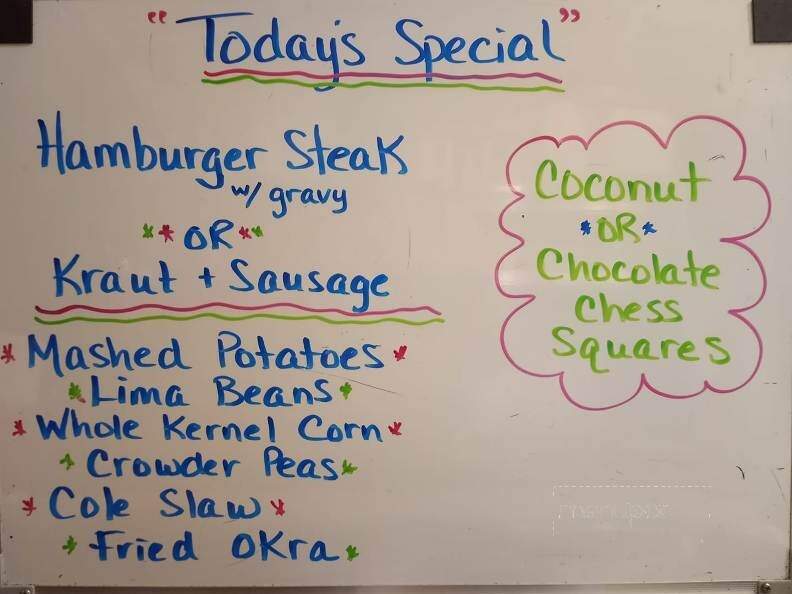 "Today's Special"
Hamburger Steak
w/ gravy
**OR**
Kraut + Sausage
*Mashed Potatoes*
*Lima Beans*
*Whole Kernel Corn*
*Crowder Peas*
*Cole Slaw*
*Fried Okra*
Coconut
*OR*
Chocolate
Chess
Squares